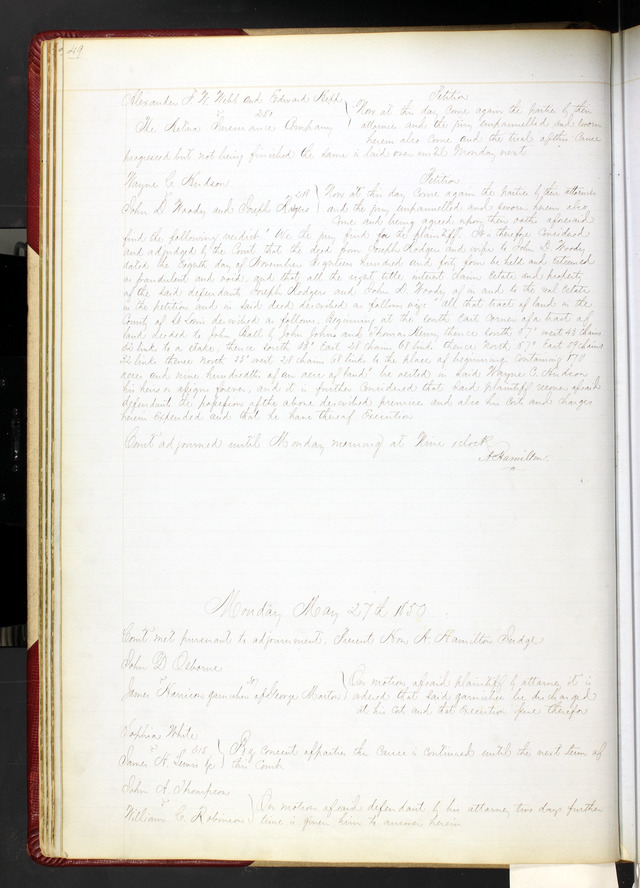 49
Alexander F. W. Webb and Edward
vs 251
The Aetna Insurance Company
Petition
Now at this day come again the parties by their
attornies and the jury impannelled and sworn
herein also come and the trial of this Cause
progressed but not being finished the same is laid over until Monday next
Wayne C. Hudson
vs
John D. Woody and Joseph Rodgers
Petition
Now at this day Come again the parties by their attornies
and the jury impannelled and sworn herein also
Come and being agreed upon their oaths aforesaid
find the following verdict "We the jury find for the plaintiff" It is therefore Considered
and adjudged by the Court that the deed from Joseph Rodgers and wife to John D. Woody
dated the Eighth day of November Eighteen hundred and forty be held and esteemed
as fraudulent and void, and that all the right title interest claim Estate and property
of the said defendants Joseph Rodgers and John D. Woody of in and to the real estate
in the petition and in said deed described as follows viz: "All that tract of land in the
County of St Louis described as follows. Beginning at the South East Corner of a tract of
land deeded to John Ball by John Johns and Thomas Henry thence South 57° west 43 chains
links to a stake, thence South 33° East 28 chains 61 links thence North 57° East 59 chains
links thence North 33° west 28 chains 61 links to the place of beginning Containing 178
acres and nine hundredths of an acre of land" be vested in said Wayne C. Hudson
his heirs & assigns forever, and it is further Considered that said plaintiff recover of said
defendants the possession of the above described premises and also his Costs and charges
herein expended and that he have thereof Execution
Court adjourned until Monday morning at Nine oclock
A Hamilton
Monday May 27th 1850
Court met pursuant to adjournment. Present Hon A. Hamilton Judge
John D Osborne
vs
James Harrison garnishee of George Morton
On motion of said plaintiff by attorney it is
ordered that said garnishee be discharged
at his Cost and that Execution issue therefor
Sophia White
vs 615
James H. Lewis &c
By consent of parties this Cause is continued until the next term of
this Court
John A. Thompson
vs
William C. Robinson
On motion of said defendant by his attorney two days further
time is given him to answer herein